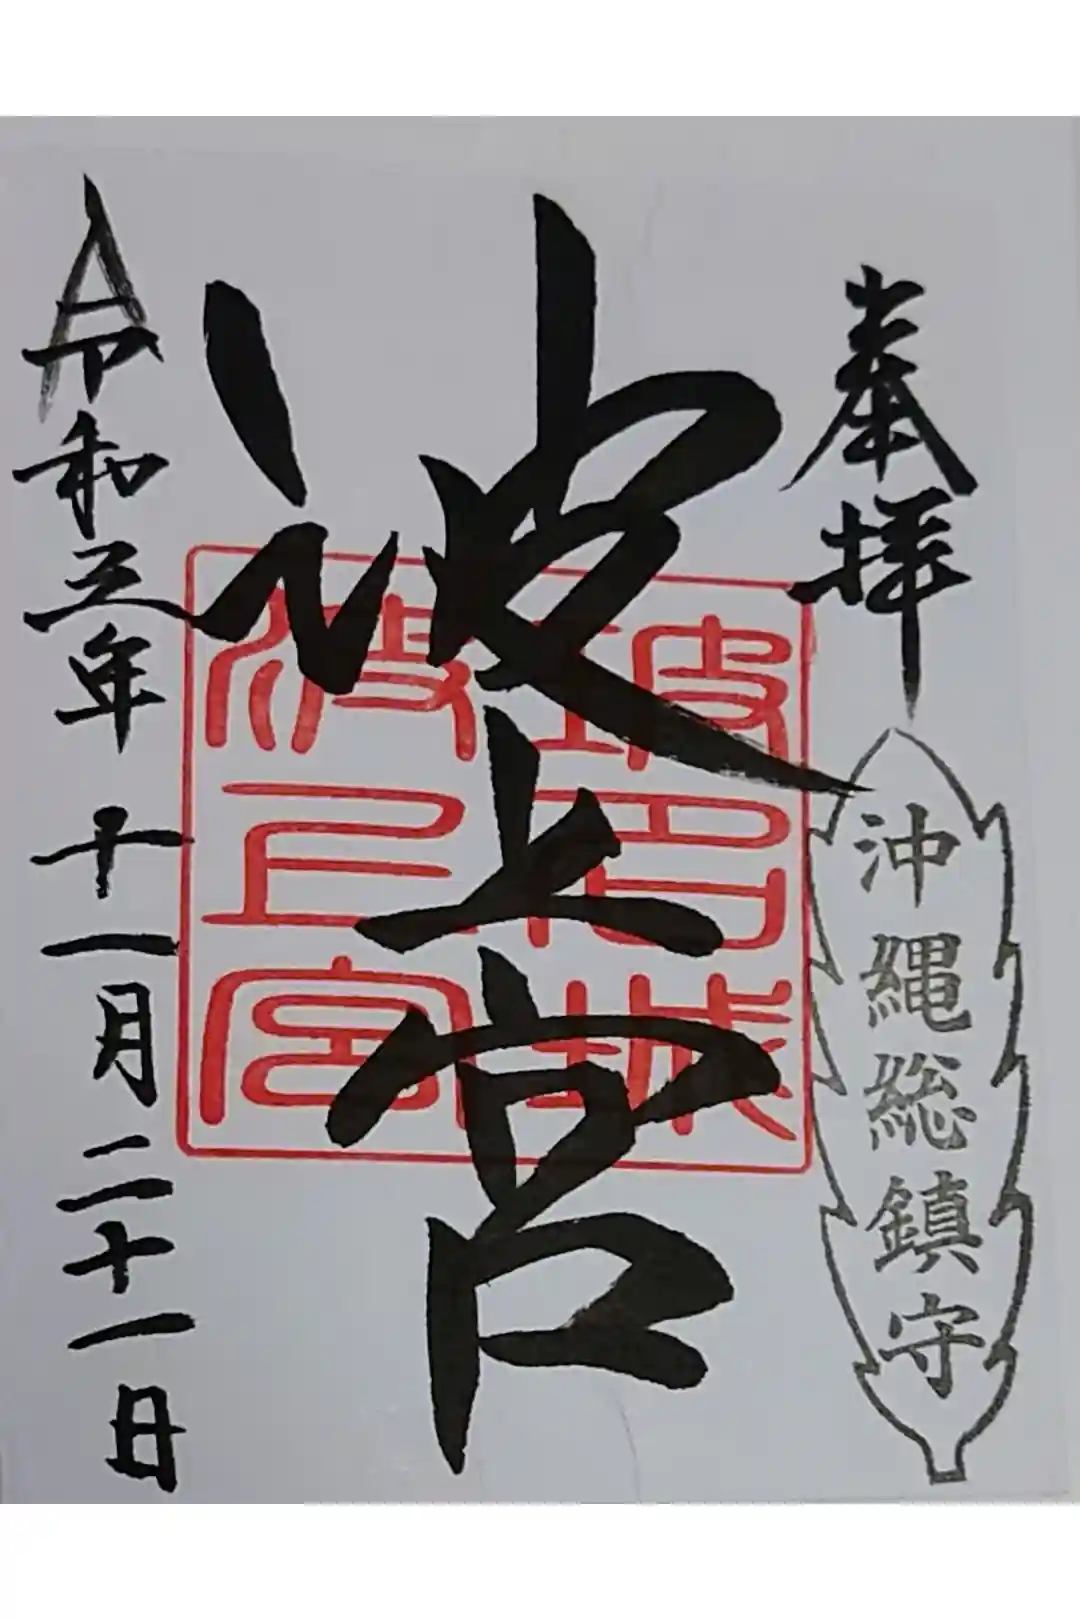 奉拝
沖縄総鎮守
波上宮
令和三年十一月二十一日
波上宮